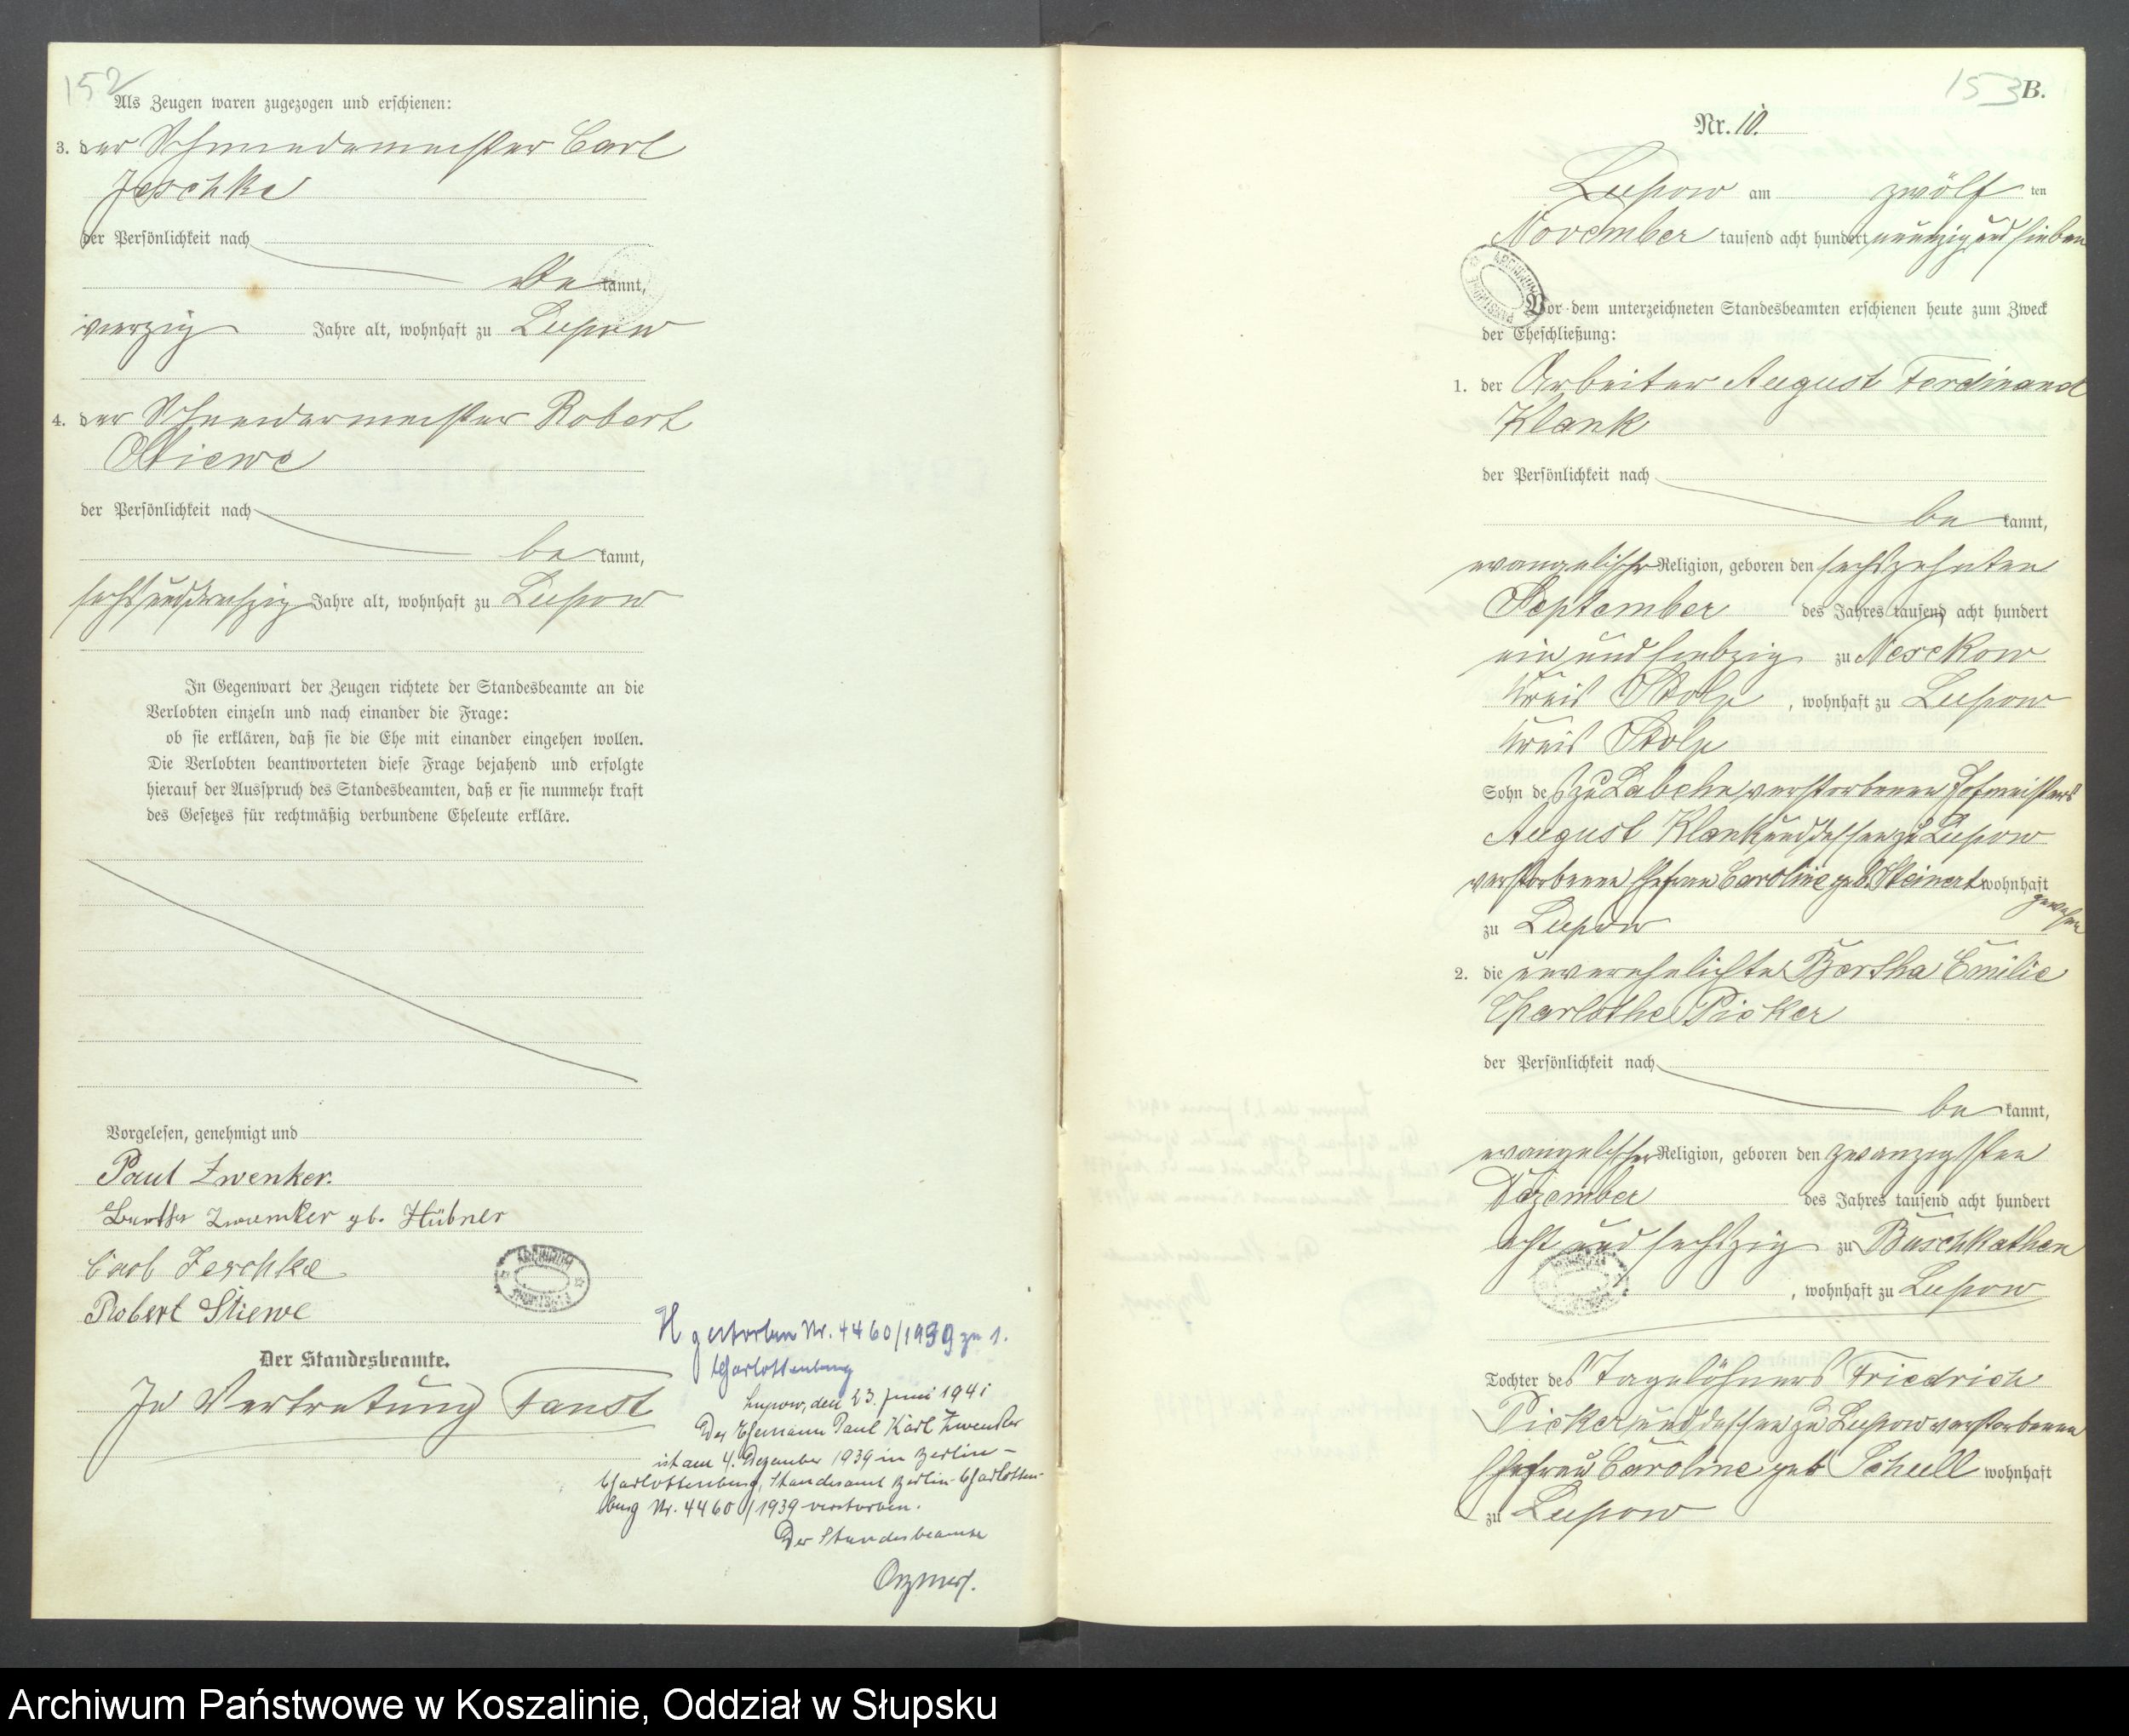 152
Als Zeugen waren zugezogen und erschienen:
3. der Schmiedemeister Carl
Jeschke
der Persönlichkeit nach
be kannt,
vierzig Jahre alt, wohnhaft zu Lupow
4. der Schneidermeister Robert
Stiewe
der Persönlichkeit nach
be kannt,
sechsunddreißig Jahre alt, wohnhaft zu Lupow
In Gegenwart der Zeugen richtete der Standesbeamte an die
Verlobten einzeln und nach einander die Frage:
ob sie erklären, daß sie die Ehe mit einander eingehen wollen.
Die Verlobten beantworteten diese Frage bejahend und erfolgte
hierauf der Ausspruch des Standesbeamten, daß er sie nunmehr kraft
des Gesetzes für rechtmäßig verbundene Eheleute erkläre.
Vorgelesen, genehmigt und
Paul Zwenker.
Bertha Zwenker gb. Hübner
Carl Jeschke
Robert Stiewe
Der Standesbeamte.
In Vertretung Faust
H gestorben Nr. 4460/1939 zu 1.
Charlottenburg
Lupow, den 23. Juni 1941
Der Ehemann Paul Karl Zwenker
ist am 4. Dezember 1939 in Berlin-
Charlottenburg, Standesamt Berlin-Charlotten-
burg Nr. 4460/1939 verstorben.
Der Standesbeamte
153 B.
Nr. 10.
Lupow am zwölf ten
November tausend acht hundert neunzig und sieben
Vor dem unterzeichneten Standesbeamten erschienen heute zum Zweck
der Eheschließung:
1. der Arbeiter August Ferdinand
Klank
der Persönlichkeit nach
be kannt,
evangelischer Religion, geboren den sechszehnten
September des Jahres tausend acht hundert
ein und siebzig zu Nesekow
Kreis Stolp, wohnhaft zu Lupow
Kreis Stolp
Sohn des zu Labehn verstorbenen Hofmeisters
August Klank und dessen zu Lupow
verstorbenen Ehefrau Caroline geb. Steinert wohnhaft
gewesen
zu Lupow
2. die unverehelichte Bertha Emilie
Charlothe Picker
der Persönlichkeit nach
be kannt,
evangelischer Religion, geboren den zwanzigsten
Dezember des Jahres tausend acht hundert
acht und sechszig zu Buschkathen
, wohnhaft zu Lupow
Tochter des Tagelöhners Friedrich
Picker und dessen zu Lupow verstorbenen
Ehefrau Caroline geb Schull wohnhaft
zu Lupow
Archiwum Państwowe w Koszalinie, Oddział w Słupsku